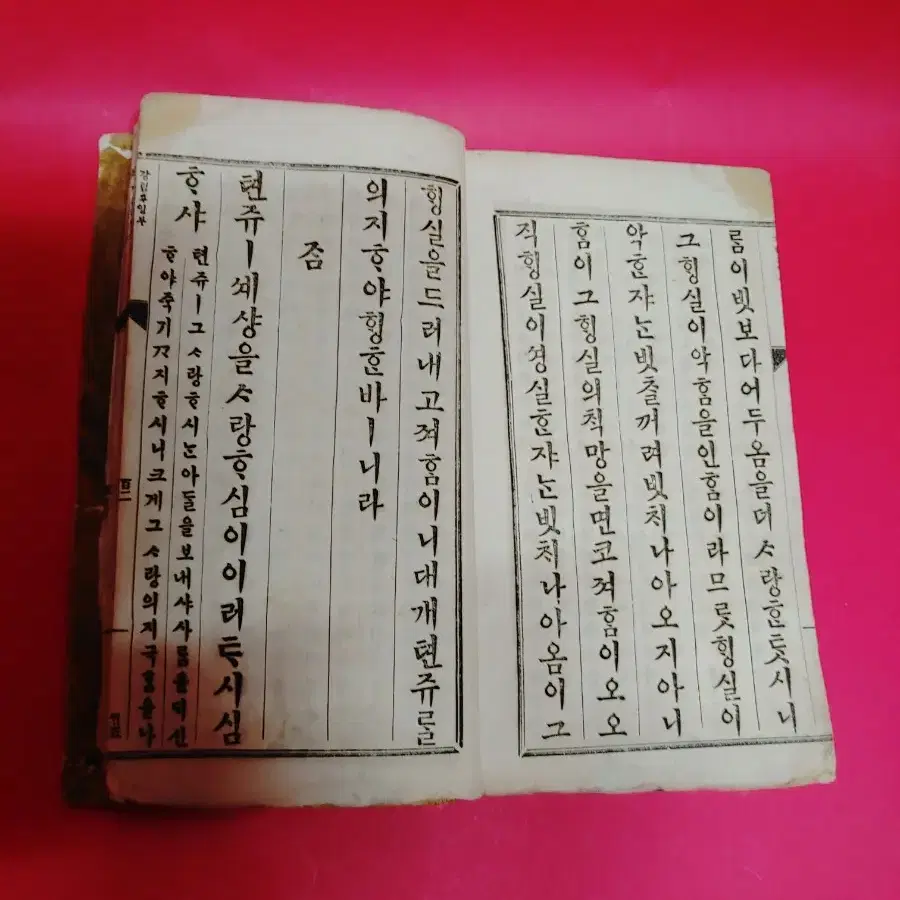 ᄅᆞᆷ이빗보다어두옴을더ᄉᆞ랑ᄒᆞᆫ듯시니
그ᄒᆡᆼ실이악ᄒᆞᆷ을인ᄒᆞᆷ이라므릇ᄒᆡᆼ실이
악ᄒᆞᆫ쟈ᄂᆞᆫ빗츨ᄭᅥ려빗치나아오지아니
ᄒᆞᆷ이그ᄒᆡᆼ실의ᄎᆡᆨ망을면코져ᄒᆞᆷ이오오
직ᄒᆡᆼ실이셩실ᄒᆞᆫ쟈ᄂᆞᆫ빗치나아옴이그
ᄒᆡᆼ실을드러내고져ᄒᆞᆷ이니대개텬쥬ᄅᆞᆯ
의지ᄒᆞ야ᄒᆡᆼᄒᆞᆫ바ㅣ니라
좀
텬쥬ㅣ셰샹을ᄉᆞ랑ᄒᆞ심이이러ᄐᆞᆺ시심
ᄒᆞ샤
텬쥬ㅣ그ᄉᆞ랑ᄒᆞ시ᄂᆞᆫ아ᄃᆞᆯ을보내샤사ᄅᆞᆷ을ᄃᆡ신
ᄒᆞ야죽기ᄭᆞ지ᄒᆞ시니크게그ᄉᆞ랑의지극ᄒᆞᆷ을나
강림후일부